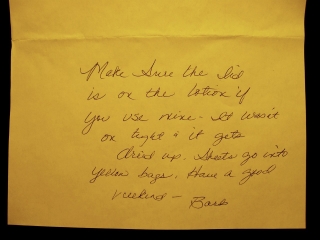 Make Sure the lid
is on the lotion if
you use mine - It wasn't
on tight & it gets
dried up. Sheets go into
yellow bags. Have a good
weekend - Barb